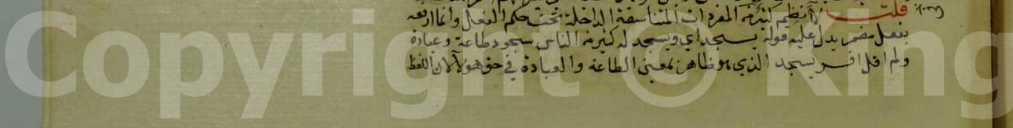 قلت لا أنظم كثير من المفردات المتناسقة الداخلة تحت حكم الفعل وانما ارفعه
بفعل مضمر يدل عليه قوله يسجد اى ويسجد له كثير من الناس سجود طاعة وعبادة
ولم اقل افسر يسجد الذى هو ظاهر بمعنى الطاعة والعبادة فى حق هؤلاء لان اللفظ
Copyright © King